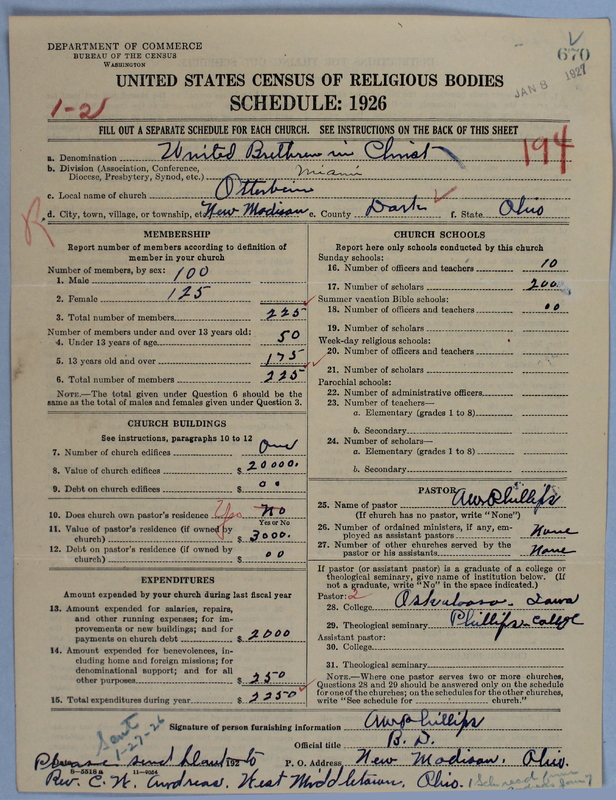 DEPARTMENT OF COMMERCE
BUREAU OF THE CENSUS
WASHINGTON
670
JAN 8 1927
UNITED STATES CENSUS OF RELIGIOUS BODIES
SCHEDULE: 1926
1-2
FILL OUT A SEPARATE SCHEDULE FOR EACH CHURCH. SEE INSTRUCTIONS ON THE BACK OF THIS SHEET
194
a. Denomination United Brethren in Christ
b. Division (Association, Conference, Diocese, Presbytery, Synod, etc.) Miami
c. Local name of church Otterbein
d. City, town, village, or township, etc. New Madison e. County Dark f. State Ohio
R
MEMBERSHIP
Report number of members according to definition of member in your church
Number of members, by sex:
1. Male 100
2. Female 125
3. Total number of members 225
Number of members under and over 13 years old:
4. Under 13 years of age 50
5. 13 years old and over 175
6. Total number of members 225
NOTE.—The total given under Question 6 should be the same as the total of males and females given under Question 3.
CHURCH BUILDINGS
See instructions, paragraphs 10 to 12
7. Number of church edifices One
8. Value of church edifices $ 20000.
9. Debt on church edifices $ 00
10. Does church own pastor's residence Yes No
Yes or No
11. Value of pastor's residence (if owned by church) $ 3000.
12. Debt on pastor's residence (if owned by church) $ 00
EXPENDITURES
Amount expended by your church during last fiscal year
13. Amount expended for salaries, repairs, and other running expenses; for improvements or new buildings; and for payments on church debt $ 2000
14. Amount expended for benevolences, including home and foreign missions; for denominational support; and for all other purposes $ 250
15. Total expenditures during year $ 2250
CHURCH SCHOOLS
Report here only schools conducted by this church
Sunday schools:
16. Number of officers and teachers 10
17. Number of scholars 200
Summer vacation Bible schools:
18. Number of officers and teachers 00
19. Number of scholars
Week-day religious schools:
20. Number of officers and teachers
21. Number of scholars
Parochial schools:
22. Number of administrative officers
23. Number of teachers—
a. Elementary (grades 1 to 8)
b. Secondary
24. Number of scholars—
a. Elementary (grades 1 to 8)
b. Secondary
PASTOR
25. Name of pastor AW Phillips
(If church has no pastor, write "None")
26. Number of ordained ministers, if any, employed as assistant pastors None
27. Number of other churches served by the pastor or his assistants None
If pastor (or assistant pastor) is a graduate of a college or theological seminary, give name of institution below. (If not a graduate, write "No" in the space indicated.)
Pastor: 2
28. College Oskaloosa - Iowa
29. Theological seminary Phillips College
Assistant pastor:
30. College
31. Theological seminary
NOTE.—Where one pastor serves two or more churches, Questions 28 and 29 should be answered only on the schedule for one of the churches; on the schedules for the other churches, write "See schedule for church."
Signature of person furnishing information AW Phillips
Official title B. D.
Sent 1-27-26
192
P. O. Address New Madison, Ohio.
Please send blank to
8-5518 a 11-9054
Rev. C. W. Andreas, West Middletown, Ohio.